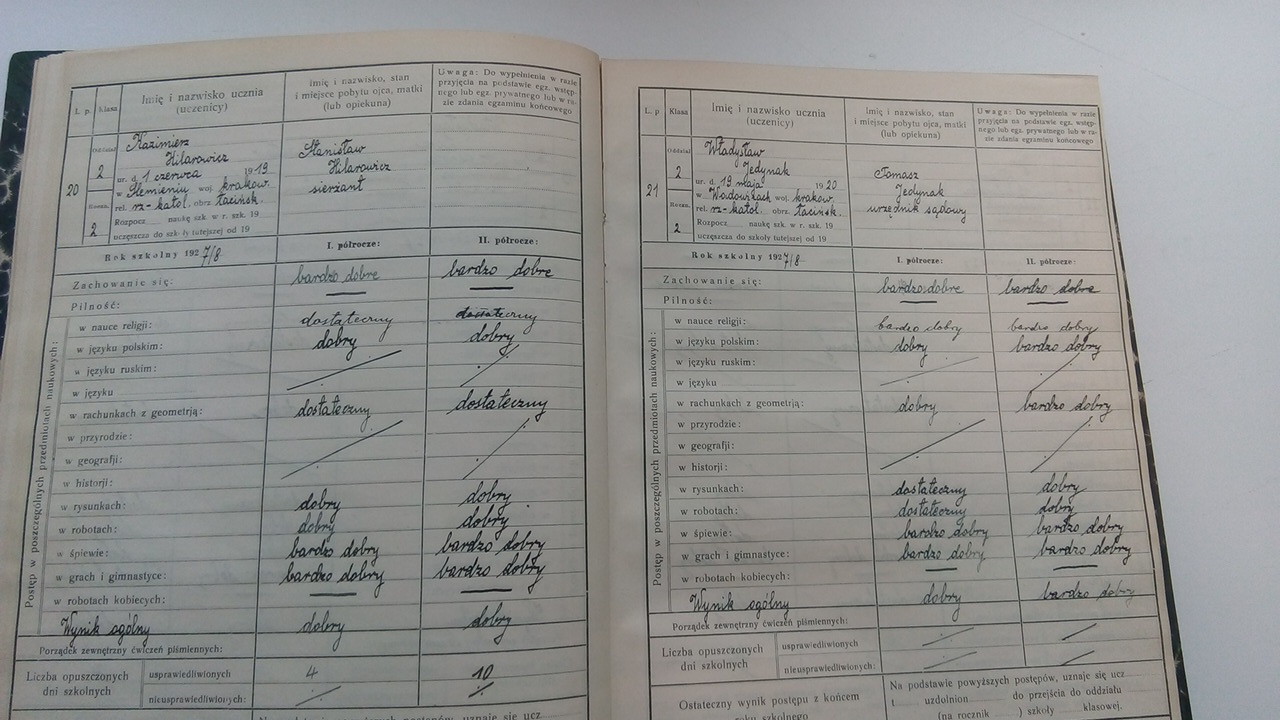 L. p.
Klasa
Imię i nazwisko ucznia
(uczenicy)
imię i nazwisko, stan
i miejsce pobytu ojca, matki
(lub opiekuna)
Uwaga: Do wypełnienia w razie
przyjęcia na podstawie egz. wstęp-
nego lub egz. prywatnego lub w ra-
zie zdania egzaminu końcowego
20
Oddział
2
Roczn.
2
Kazimierz
Hilarowicz
ur. d. 1 czerwca 1919
w Ślemieniu woj. krakow.
rel. rz-katol. obrz. łacińsk.
Rozpocz. naukę szk. w r. szk. 19
uczęszcza do szkoły tutejszej od 19
Stanisław
Hilarowicz
sierżant
Rok szkolny 1927/8
I. półrocze:
II. półrocze:
Zachowanie się: bardzo dobre bardzo dobre
Pilność:
Postęp w poszczególnych przedmiotach naukowych:
w nauce religji: dostateczny dostateczny
w języku polskim: dobry dobry
w języku ruskim:
w języku
w rachunkach z geometrją: dostateczny dostateczny
w przyrodzie:
w geografji:
w historji:
w rysunkach: dobry dobry
w robotach: dobry dobry
w śpiewie: bardzo dobry bardzo dobry
w grach i gimnastyce: bardzo dobry bardzo dobry
w robotach kobiecych:
Wynik ogólny dobry dobry
Porządek zewnętrzny ćwiczeń piśmiennych:
Liczba opuszczonych
dni szkolnych
usprawiedliwionych 4 10
nieusprawiedliwionych:
L. p
Klasa
Imię i nazwisko ucznia
(uczenicy)
Imię i nazwisko, stan
i miejsce pobytu ojca, matki
(lub opiekuna)
Uwaga: Do wypełnienia w razie
przyjęcia na podstawie egz. wstęp-
nego lub egz. prywatnego lub w ra-
zie zdania egzaminu końcowego
21
Oddział
2
Roczn.
2
Władysław
Jedynak
ur. d. 19 maja 1920
w Wadowicach woj. krakow.
rel. rz-katol. obrz. łacińsk.
Rozpocz. naukę szk. w r. szk. 19
uczęszcza do szkoły tutejszej od 19
Tomasz
Jedynak
urzędnik sądowy
Rok szkolny 1927/8
I. półrocze:
II. półrocze:
Zachowanie się: bardzo dobre bardzo dobre
Pilność:
Postęp w poszczególnych przedmiotach naukowych:
w nauce religji: bardzo dobry bardzo dobry
w języku polskim: dobry bardzo dobry
w języku ruskim:
w języku
w rachunkach z geometrją: dobry bardzo dobry
w przyrodzie:
w geografji:
w historji:
w rysunkach: dostateczny dobry
w robotach: dostateczny dobry
w śpiewie: bardzo dobry bardzo dobry
w grach i gimnastyce: bardzo dobry bardzo dobry
w robotach kobiecych:
Wynik ogólny dobry bardzo dobry
Porządek zewnętrzny ćwiczeń piśmiennych:
Liczba opuszczonych
dni szkolnych
usprawiedliwionych
nieusprawiedliwionych:
Ostateczny wynik postępu z końcem
roku szkolnego
Na podstawie powyższych postępów, uznaje się ucz
t uzdolnion do przejścia do oddziału
(na rocznik ) szkoły klasowej.